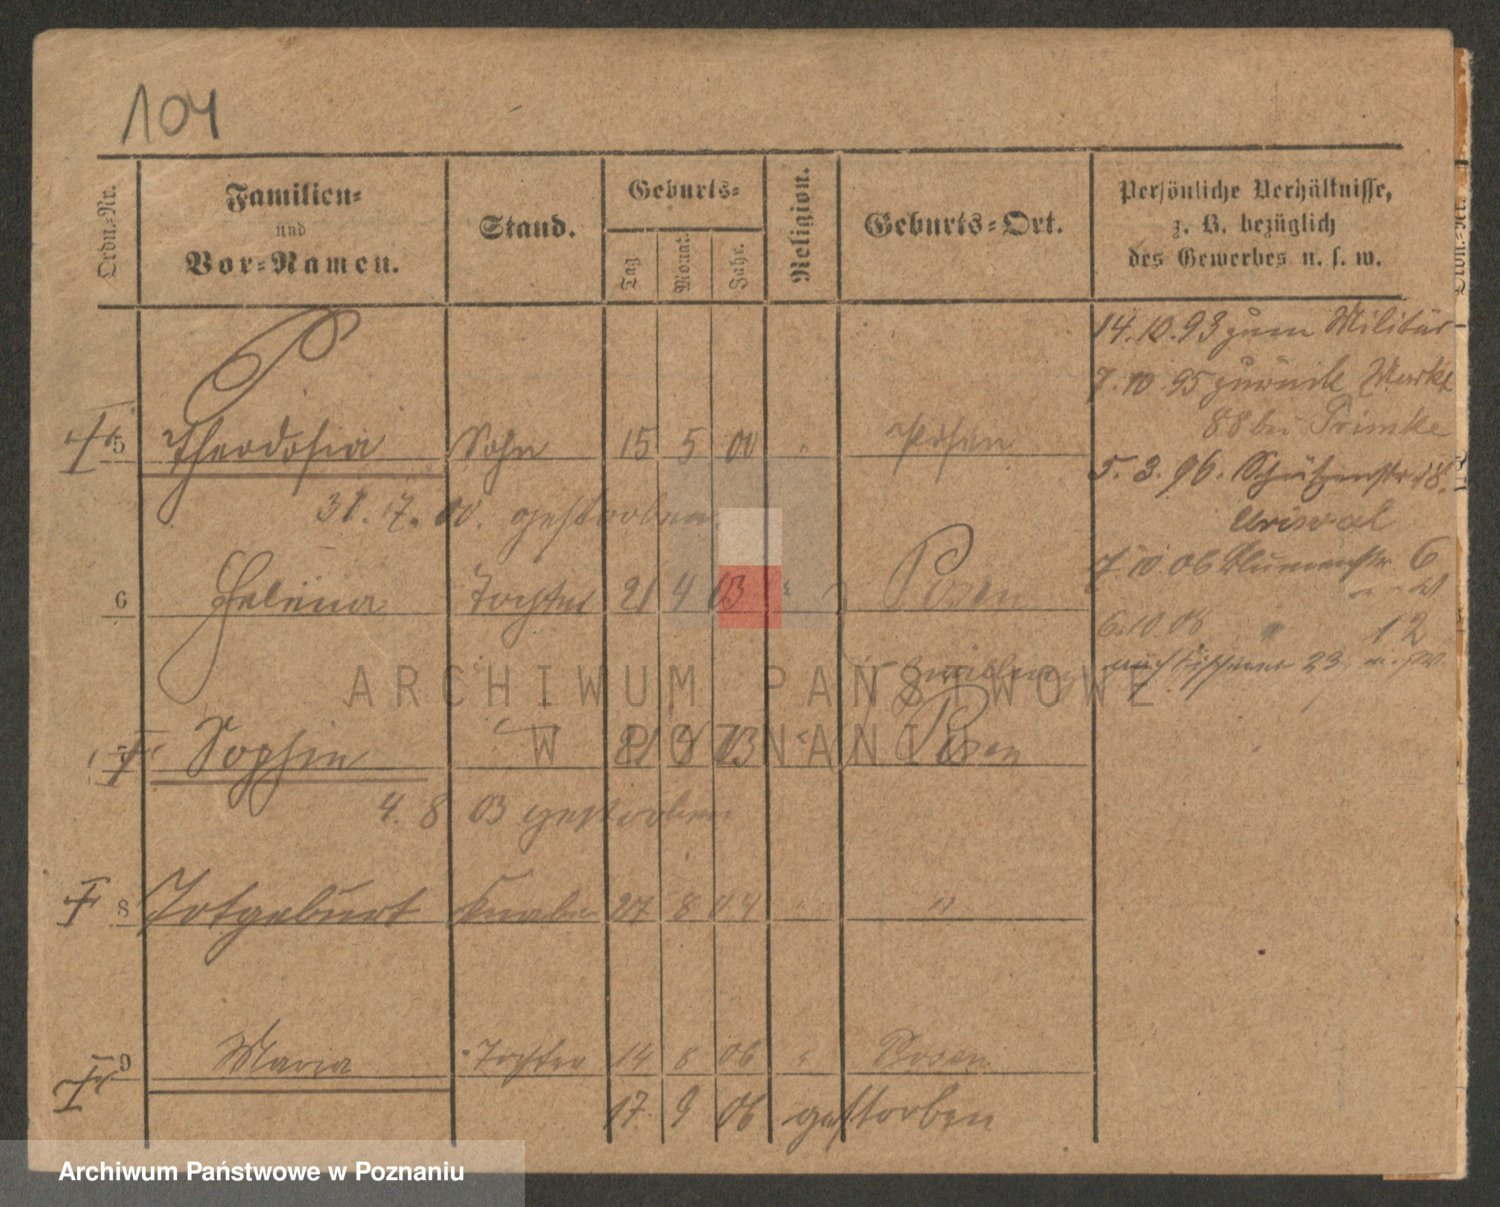 104
Ordn.-Nr.
Familien-
und
Vor-Namen.
Stand.
Geburts-
Tag.
Monat.
Jahr.
Religion.
Geburts-Ort.
Persönliche Verhältnisse,
z. B. bezüglich
des Gewerbes u. s. w.
14.10.93 zum Militär
7.10.95 zurück Markt
88 bei Primke
5 Theodosia Sohn 15 5 00 " Posen
5.3.96. Schützenstr 18.
31.7.00. gestorben
7.10 06 Blumenstr 6
6 Helena Tochter 21 4 03 " Posen
6.10 06 " 12
7 Sophia 21 3 03 " Posen
4. 8 03 gestorben
8 Totgeburt Knabe 27 8 04 " "
9 Maria Tochter 14 8 06 " Posen
17 9 06 gestorben
ARCHIWUM PAŃSTWOWE
W POZNANIU
Archiwum Państwowe w Poznaniu